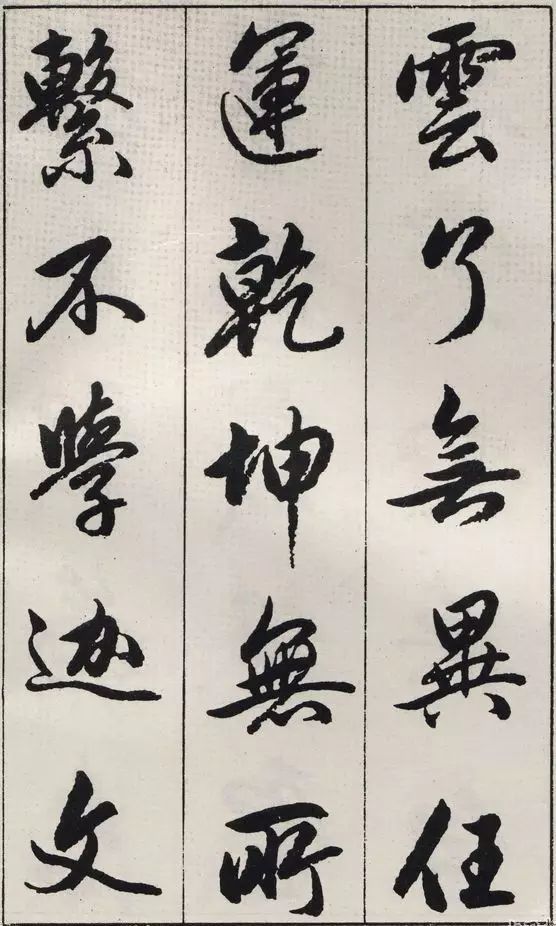 雲兮無異任
運乾坤無所
繫不學迹文